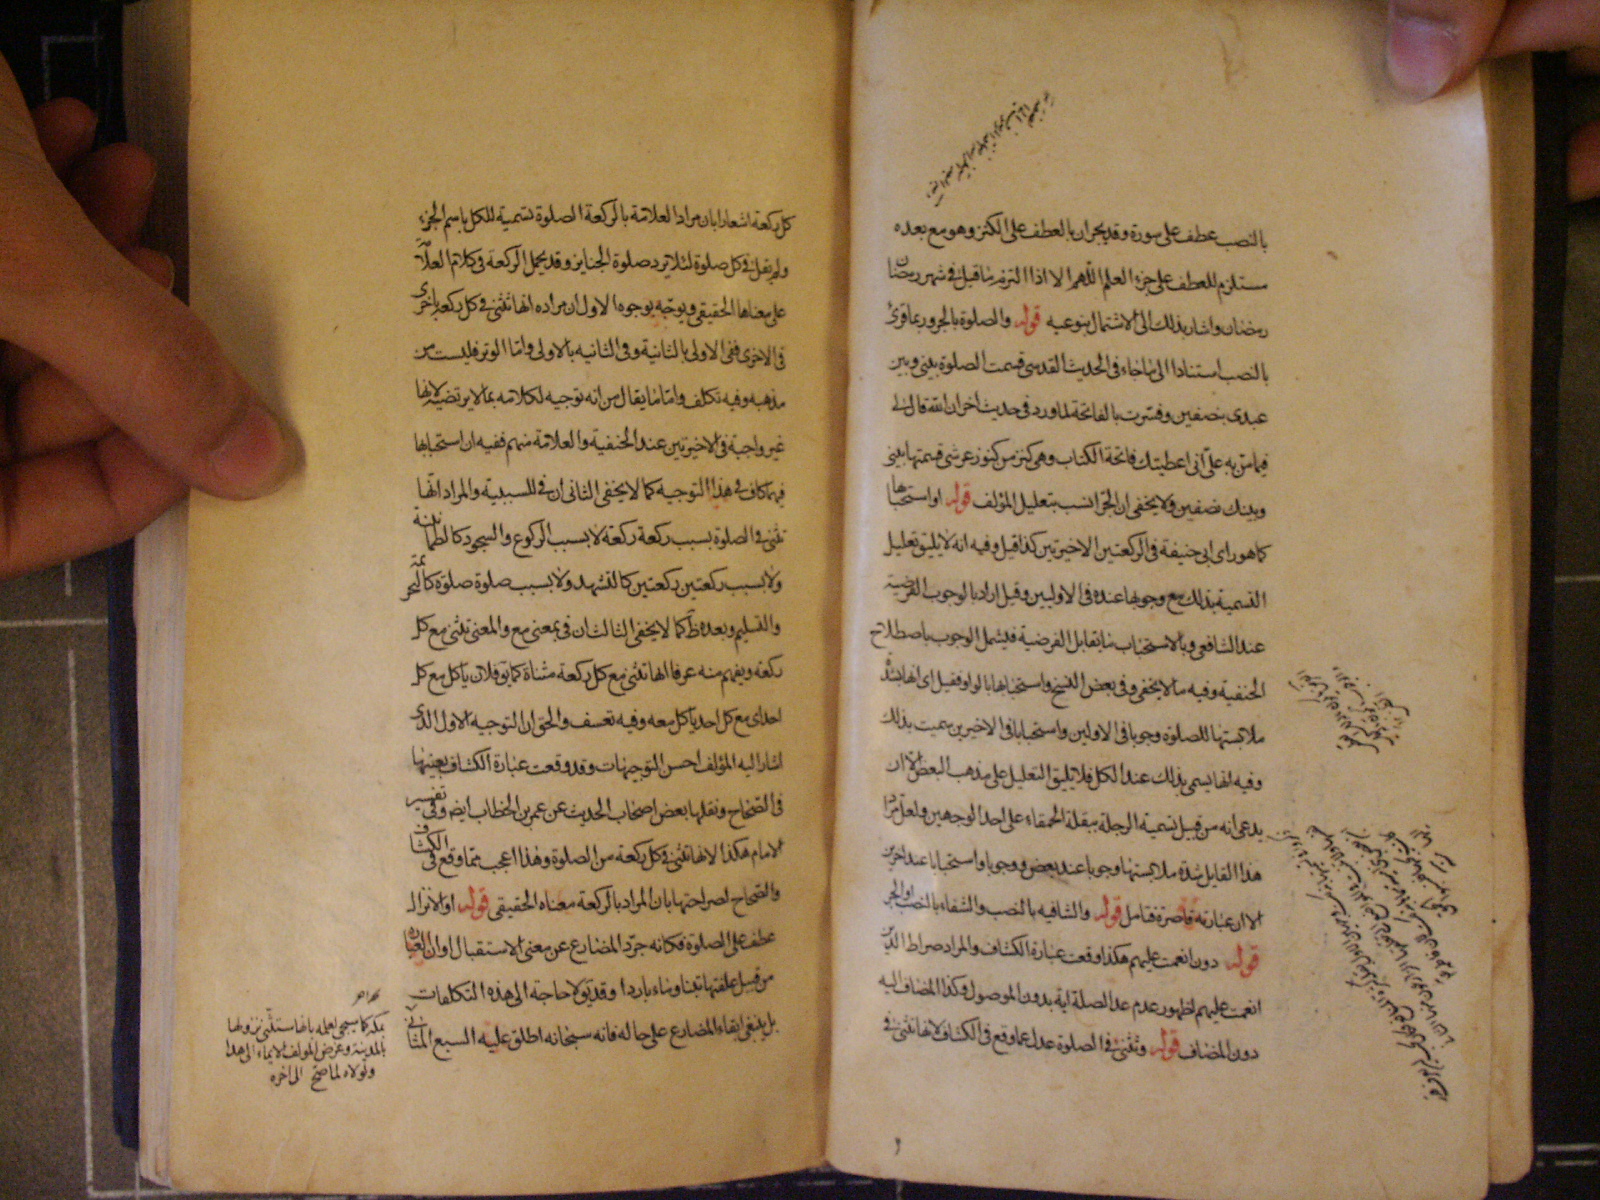 بالنصب عطف على سورة وقد يجران بالعطف على الكنز وهو مع بعده
مستلزم للعطف على جزء العلم اللهم الا اذا التزم ما قيل في شهر رمضان
رمضان واشار بذلك الى الاشتمال بنوعيه قوله والصلوة بالجر وربما قرئ
بالنصب استنادا الى ما جاء في الحديث القدسي قسمت الصلوة بيني وبين
عبدي نصفين وفسرت بالفاتحة لما ورد في حديث آخر ان الله قال لي
فيما من به علي اني اعطيتك فاتحة الكتاب وهي كنز من كنوز عرشي قسمتها بيني
وبينك نصفين ولا يخفى ان الجر انسب بتعليل المؤلف قوله او استحبابها
كما هو راى ابي حنيفة في الركعتين الاخيرتين كذا قيل وفيه انه لا يليق تعليل
التسمية بذلك مع وجوبها عنده في الاوليين وقيل اراد بالوجوب الفرضية
عند الشافعي وبالاستحباب ما يقابل الفرضية فيشمل الوجوب باصطلاح
الحنفية وفيه ما لا يخفى وفي بعض النسخ واستحبابها بالواو فقيل اى انها
ملابستها للصلوة وجوبا في الاولين واستحبابا في الاخيرين سميت بذلك
وفيه انها يسمى بذلك عند الكل فلا يليق التعليل على مذهب البعض الا ان
يدعى انه من قبيل تسمية الرجلة ببقلة الحمقاء على احد الوجهين ولعل مراد
هذا القايل شدة ملابستها وجوبا عند بعض ووجوبا واستحبابا عند اخرين
الا ان عبارته قاصرة فتامل قوله والشافيه بالنصب والشفاء بالنصب والجر
قوله دون انعمت عليهم هكذا وقعت عبارة الكشاف والمراد صراط الذين
انعمت عليهم لظهور عدم عد الصلة اية بدون الموصول وكذا المضاف اليه
دون المضاف قوله وتثنى في الصلوة عدل عما وقع في الكشاف لانها تثنى في
كل ركعة اشعارا بان مراد العلامة بالركعة الصلوة تسمية للكل باسم الجزء
ولم يقل في كل صلوة لئلا يرد صلوة الجنايز وقد يحمل الركعة في كلام العلامة
على معناها الحقيقي ويوجه بوجوه الاول ان مراده انها تثنى في كل ركعة باخرى
في الاخرى ففي الاولى بالثانية وفي الثانيه بالاولى واما الوتر فليست من
مذهبه وفيه تكلف واما ما يقال من انه توجيه لكلامه بما لا يرتضيه لانها
غير واجبة في الاخيرتين عند الحنفية والعلامة منهم ففيه ان استحبابها
فيهما كاف في هذا التوجيه كما لا يخفى الثاني ان في للسببية والمراد انها
تثنى في الصلوة بسبب ركعة ركعة لا بسبب الركوع والسجود كالطمانينة
ولا بسبب ركعتين ركعتين كالتشهد ولا بسبب صلوة صلوة كالتحريمة
والتسليم وبعده ظ كما لا يخفى الثالث ان في بمعنى مع والمعنى تثنى مع كل
ركعة ويفهم منه عرفا انها تثنى مع كل ركعة مثناة كما يق فلان ياكل مع كل
احد اى مع كل احد ياكل معه وفيه تعسف والحق ان التوجيه الاول الذى
اشار اليه المؤلف احسن التوجيهات وقد وقعت عبارة الكشاف بعينها
في الصحاح ونقلها بعض اصحاب الحديث عن عمر بن الخطاب ايضا وفي تفسير
الامام هكذا لانها تثنى في كل ركعة من الصلوة وهذا اعجب مما وقع في الكشاف
والصحاح لصراحتها بان المراد بالركعة معناه الحقيقي قوله او الانزال
عطف على الصلوة فكانه جرد المضارع عن معنى الاستقبال او ان العبارة
من قبيل علفتها تبنا وماء باردا وقد يق لا حاجة الى هذه التكلفات
بل ينبغي ابقاء المضارع على حاله فانه سبحانه اطلق عليه السبع المثاني
بمكة كما سيجي لعلمه بانها ستثنى نزولها
بالمدينة وغرض المؤلف الايماء الى هذا
ولولاه لما صح الى اخره